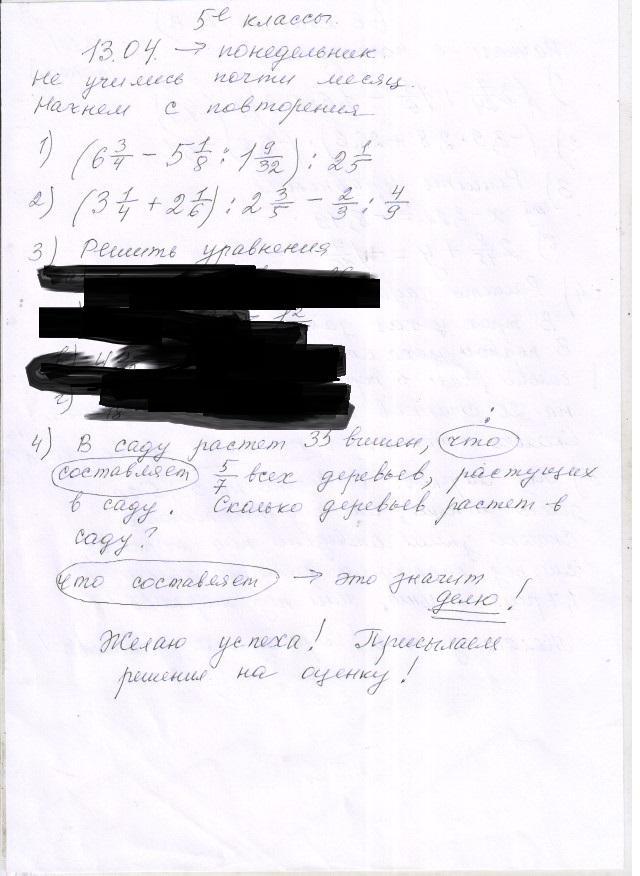 5е классы.
13.04. → понедельник
Не учились почти месяц.
Начнем с повторения
1) (6 3/4 - 5 1/8 : 1 9/32) : 2 1/5
2) (3 1/4 + 2 1/6) : 2 3/5 - 2/3 : 4/9
3) Решить уравнения
4) В саду растет 35 вишен, что
составляет 5/7 всех деревьев, растущих
в саду. Сколько деревьев растет в
саду?
что составляет → это значит
делю!
Желаю успеха! Присылаем
решения на оценку!